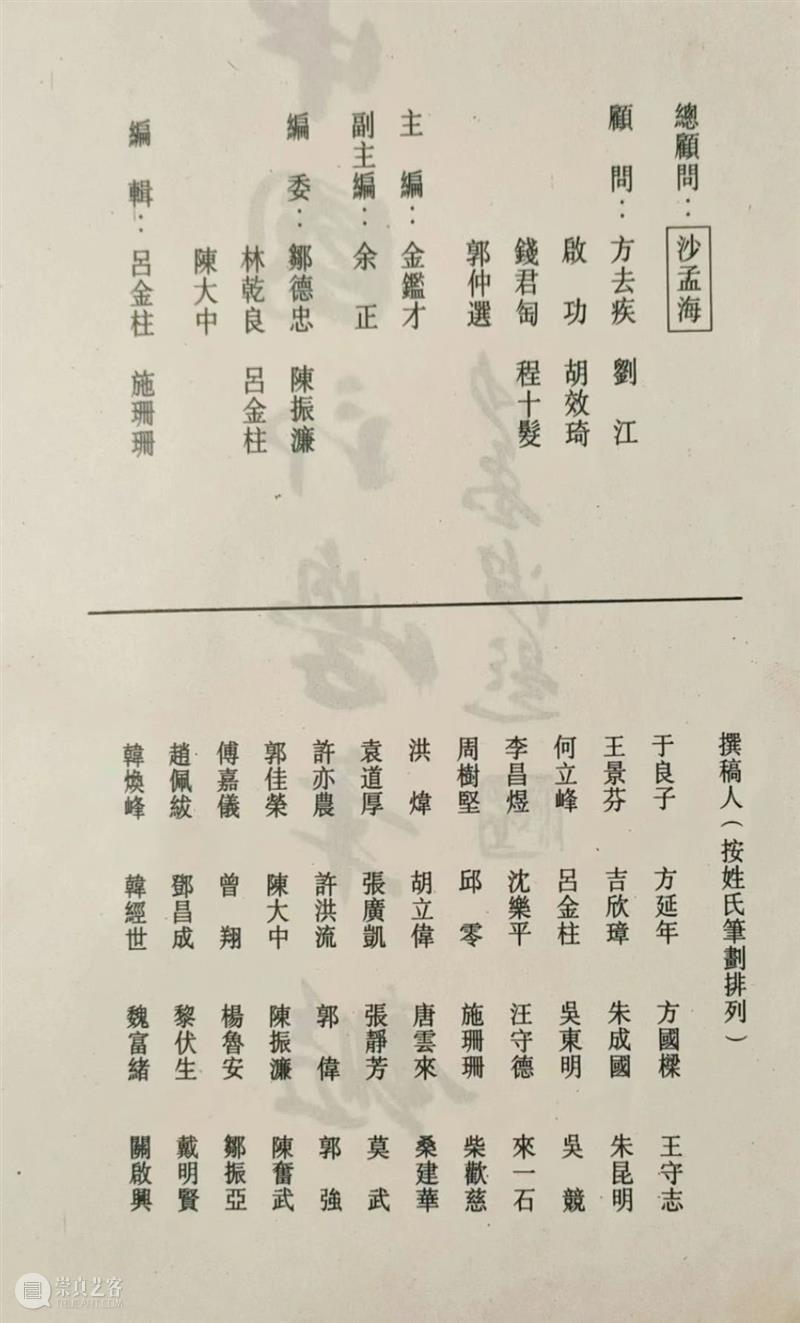 總顧問：沙孟海
顧　問：方去疾　劉　江
啟　功　胡效琦
錢君匋　程十髮
郭仲選
主　編：金鑑才
副主編：余　正
編　委：鄒德忠　陳振濂
林乾良　呂金柱
陳大中
編　輯：呂金柱　施珊珊
撰稿人（按姓氏筆劃排列）
于良子　方延年　方國樑　王守志
王景芬　吉欣璋　朱成國　朱昆明
何立峰　呂金柱　吳東明　吳　競
李昌煜　沈樂平　汪守德　來一石
周樹堅　邱　零　施珊珊　柴歡慈
洪　煒　胡立偉　唐雲來　桑建華
袁道厚　張廣凱　張靜芳　莫　武
許亦農　許洪流　郭　偉　郭　強
郭佳榮　陳大中　陳振濂　陳奮武
傅嘉儀　曾　翔　楊魯安　鄒振亞
趙佩紱　鄧昌成　黎伏生　戴明賢
韓煥峰　韓經世　魏富緒　關啟興
崇真艺客
TRUEART.COM